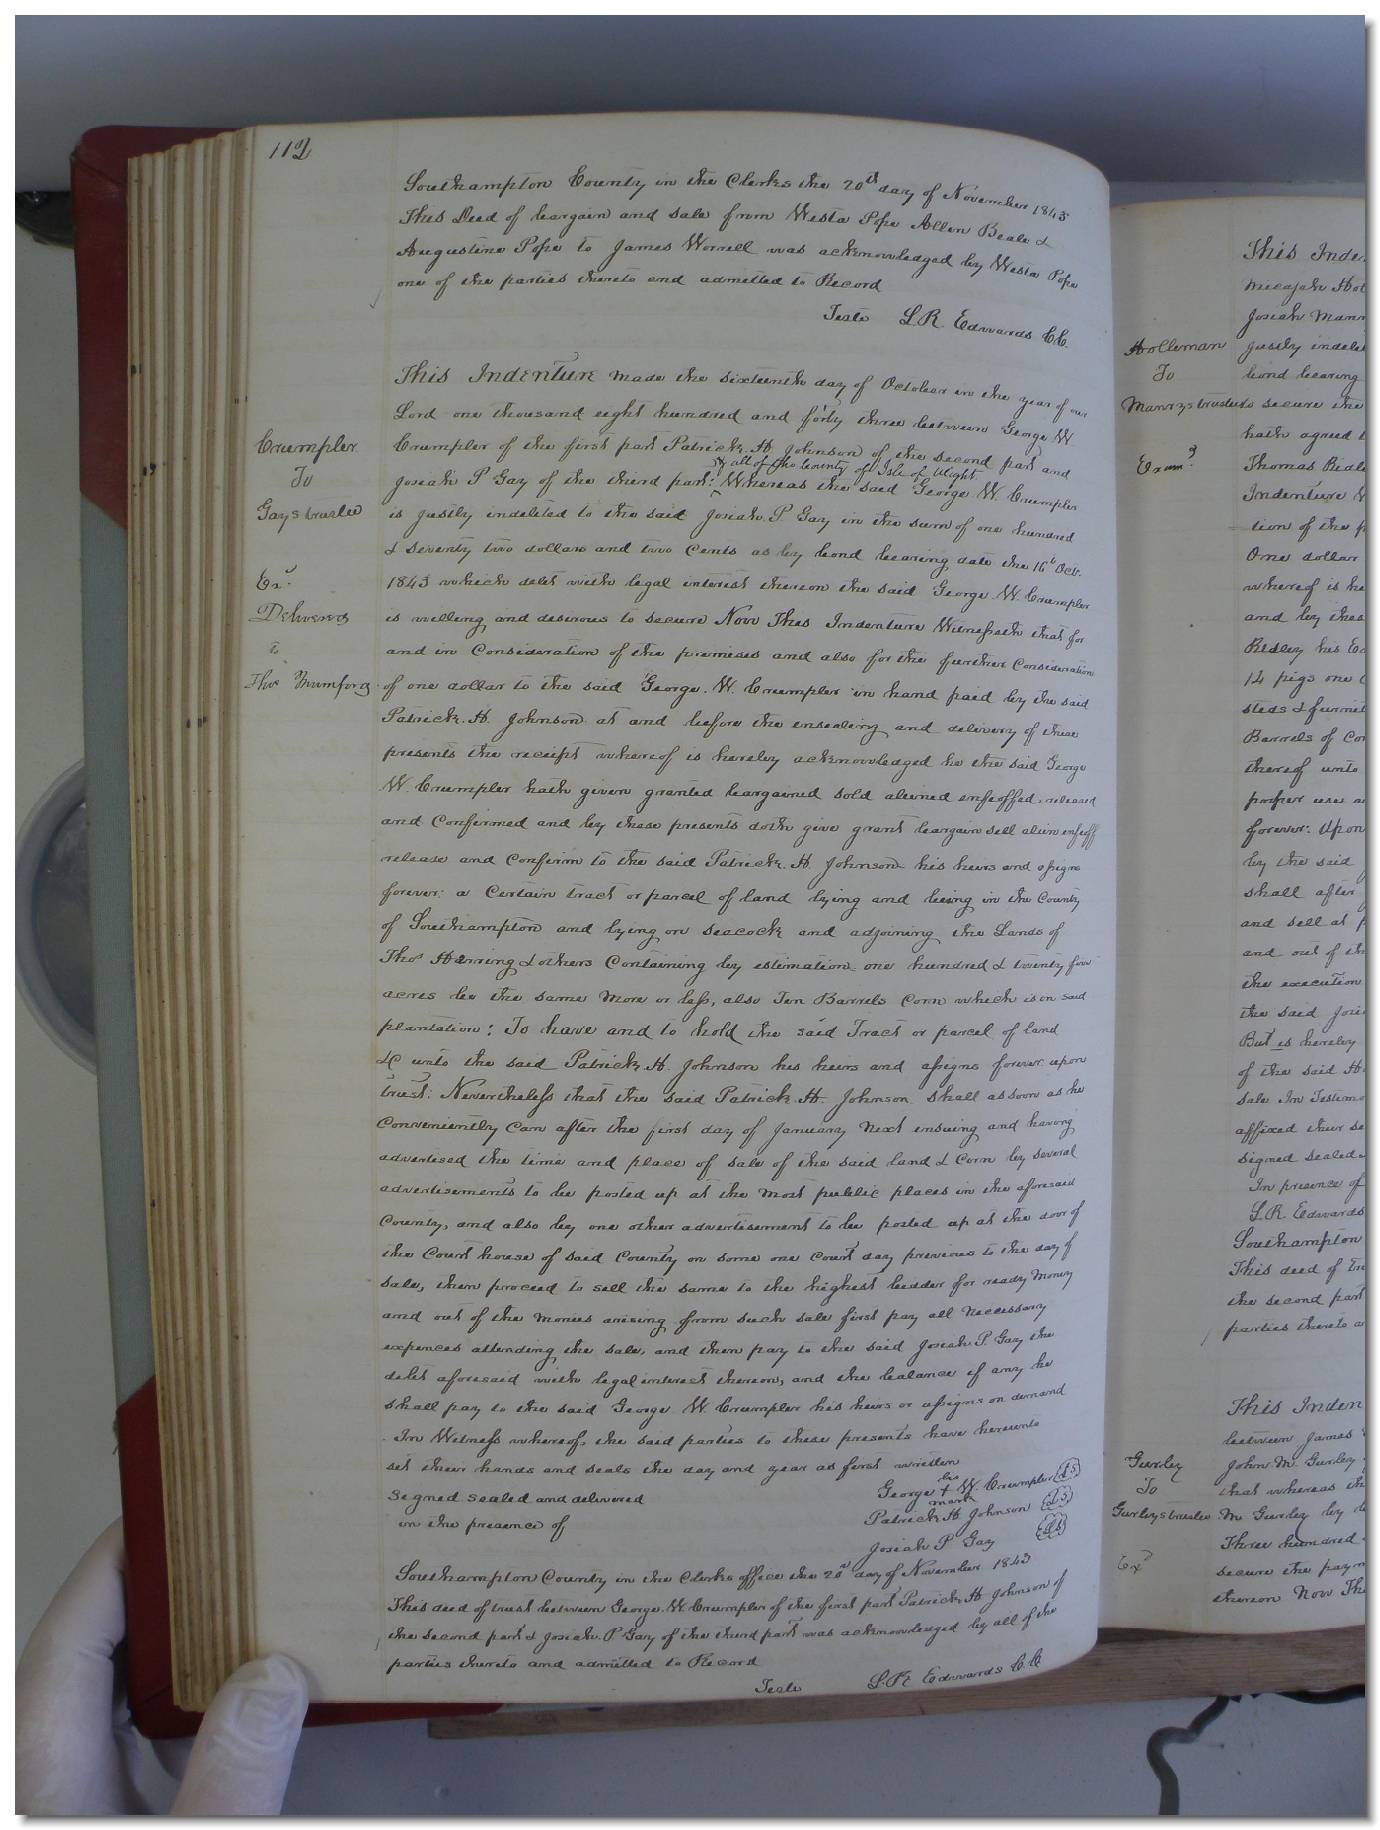 112
Southampton County in the Clerks the 20th day of November 1843
This Deed of bargain and sale from Westa Pope Allen Beale &
Augustine Pope to James Worrell was acknowledged by Westa Pope
one of the parties thereto and admitted to Record
Teste L.R. Edwards CC.
This Indenture made the sixteenth day of October in the year of our
Lord one thousand eight hundred and forty three between George W
Crumpler of the first part Patrick H. Johnson of the second part and
& all of the County of Isle of Wight
Josiah P Gay of the third part: Whereas the said George W. Crumpler
is justly indebted to the said Josiah P Gay in the sum of one hundred
& seventy two dollars and two Cents as by bond bearing date the 16th Octr.
1843 which debt with legal interest thereon the said George W. Crumpler
is willing and desirous to secure Now This Indenture Witnesseth that for
and in Consideration of the premises and also for the further Consideration
of one dollar to the said George. W. Crumpler in hand paid by the said
Patrick. H. Johnson at and before the ensealing and delivery of these
presents the receipt whereof is hereby acknowledged he the said George
W. Crumpler hath given granted bargained sold aliened enfeoffed, released
and Confirmed and by these presents doth give grant bargain sell alien enfeoff
release and Confirm to the said Patrick. H. Johnson his heirs and assigns
forever: a Certain tract or parcel of land lying and being in the County
of Southampton and lying on Seacock and adjoining the Lands of
Thos Herring & others Containing by estimation one hundred & twenty four
acres be the same more or less, also Ten Barrels Corn which is on said
plantation: To have and to hold the said Tract or parcel of land
&c unto the said Patrick. H. Johnson his heirs and assigns forever upon
trust: Nevertheless that the said Patrick. H. Johnson shall as soon as he
Conveniently Can after the first day of January Next ensuing and having
advertised the time and place of sale of the said land & Corn by several
advertisements to be posted up at the most public places in the aforesaid
County, and also by one other advertisement to be posted up at the door of
the Court house of said County on some one Court day previous to the day of
sale, then proceed to sell the same to the highest bidder for ready Money
and out of the Monies arising from such sale first pay all Necessary
expences attending the sale, and then pay to the said Josiah P. Gay the
debt aforesaid with legal interest thereon, and the balance if any he
shall pay to the said George W. Crumpler his heirs or assigns on demand
In Witness whereof, the said parties to these presents have hereunto
set their hands and seals the day and year as first written
Signed sealed and delivered
in the presence of
his
George + W. Crumpler LS
mark
Patrick H. Johnson LS
Josiah P Gay LS
Southampton County in the Clerks office the 20th day of November 1843
This deed of trust between George. W. Crumpler of the first part Patrick H Johnson of
the second part & Josiah. P Gay of the third part was acknowledged by all of the
parties thereto and admitted to Record
Teste L.R Edwards C.C
Crumpler
To
Gays trustee
Exd.
Delivered
to
Holleman
To
Manrys trustee
Gurley
To
Gurleys trustee
Exd
This Inden
Micajah Hol
Josiah Mann
justly indebt
bond bearing
to secure the
hath agreed t
Thomas Ridle
Indenture W
tion of the p
One dollar
whereof is he
and by thes
Ridley his Ex
14 pigs one
steds & furnit
Barrels of Co
thereof unto
proper use a
forever: Upon
by the said
shall after
and sell at p
and out of th
the execution
the said Josi
But is hereby
of the said H
sale In Testimo
affixed their se
signed sealed
In presence of
L.R. Edwards
Southampton
This deed of Tru
the second part
parties thereto a
This Inden
between James
John M. Gurley
that whereas th
M Gurley by b
Three hundred
secure the paym
thereon Now Th